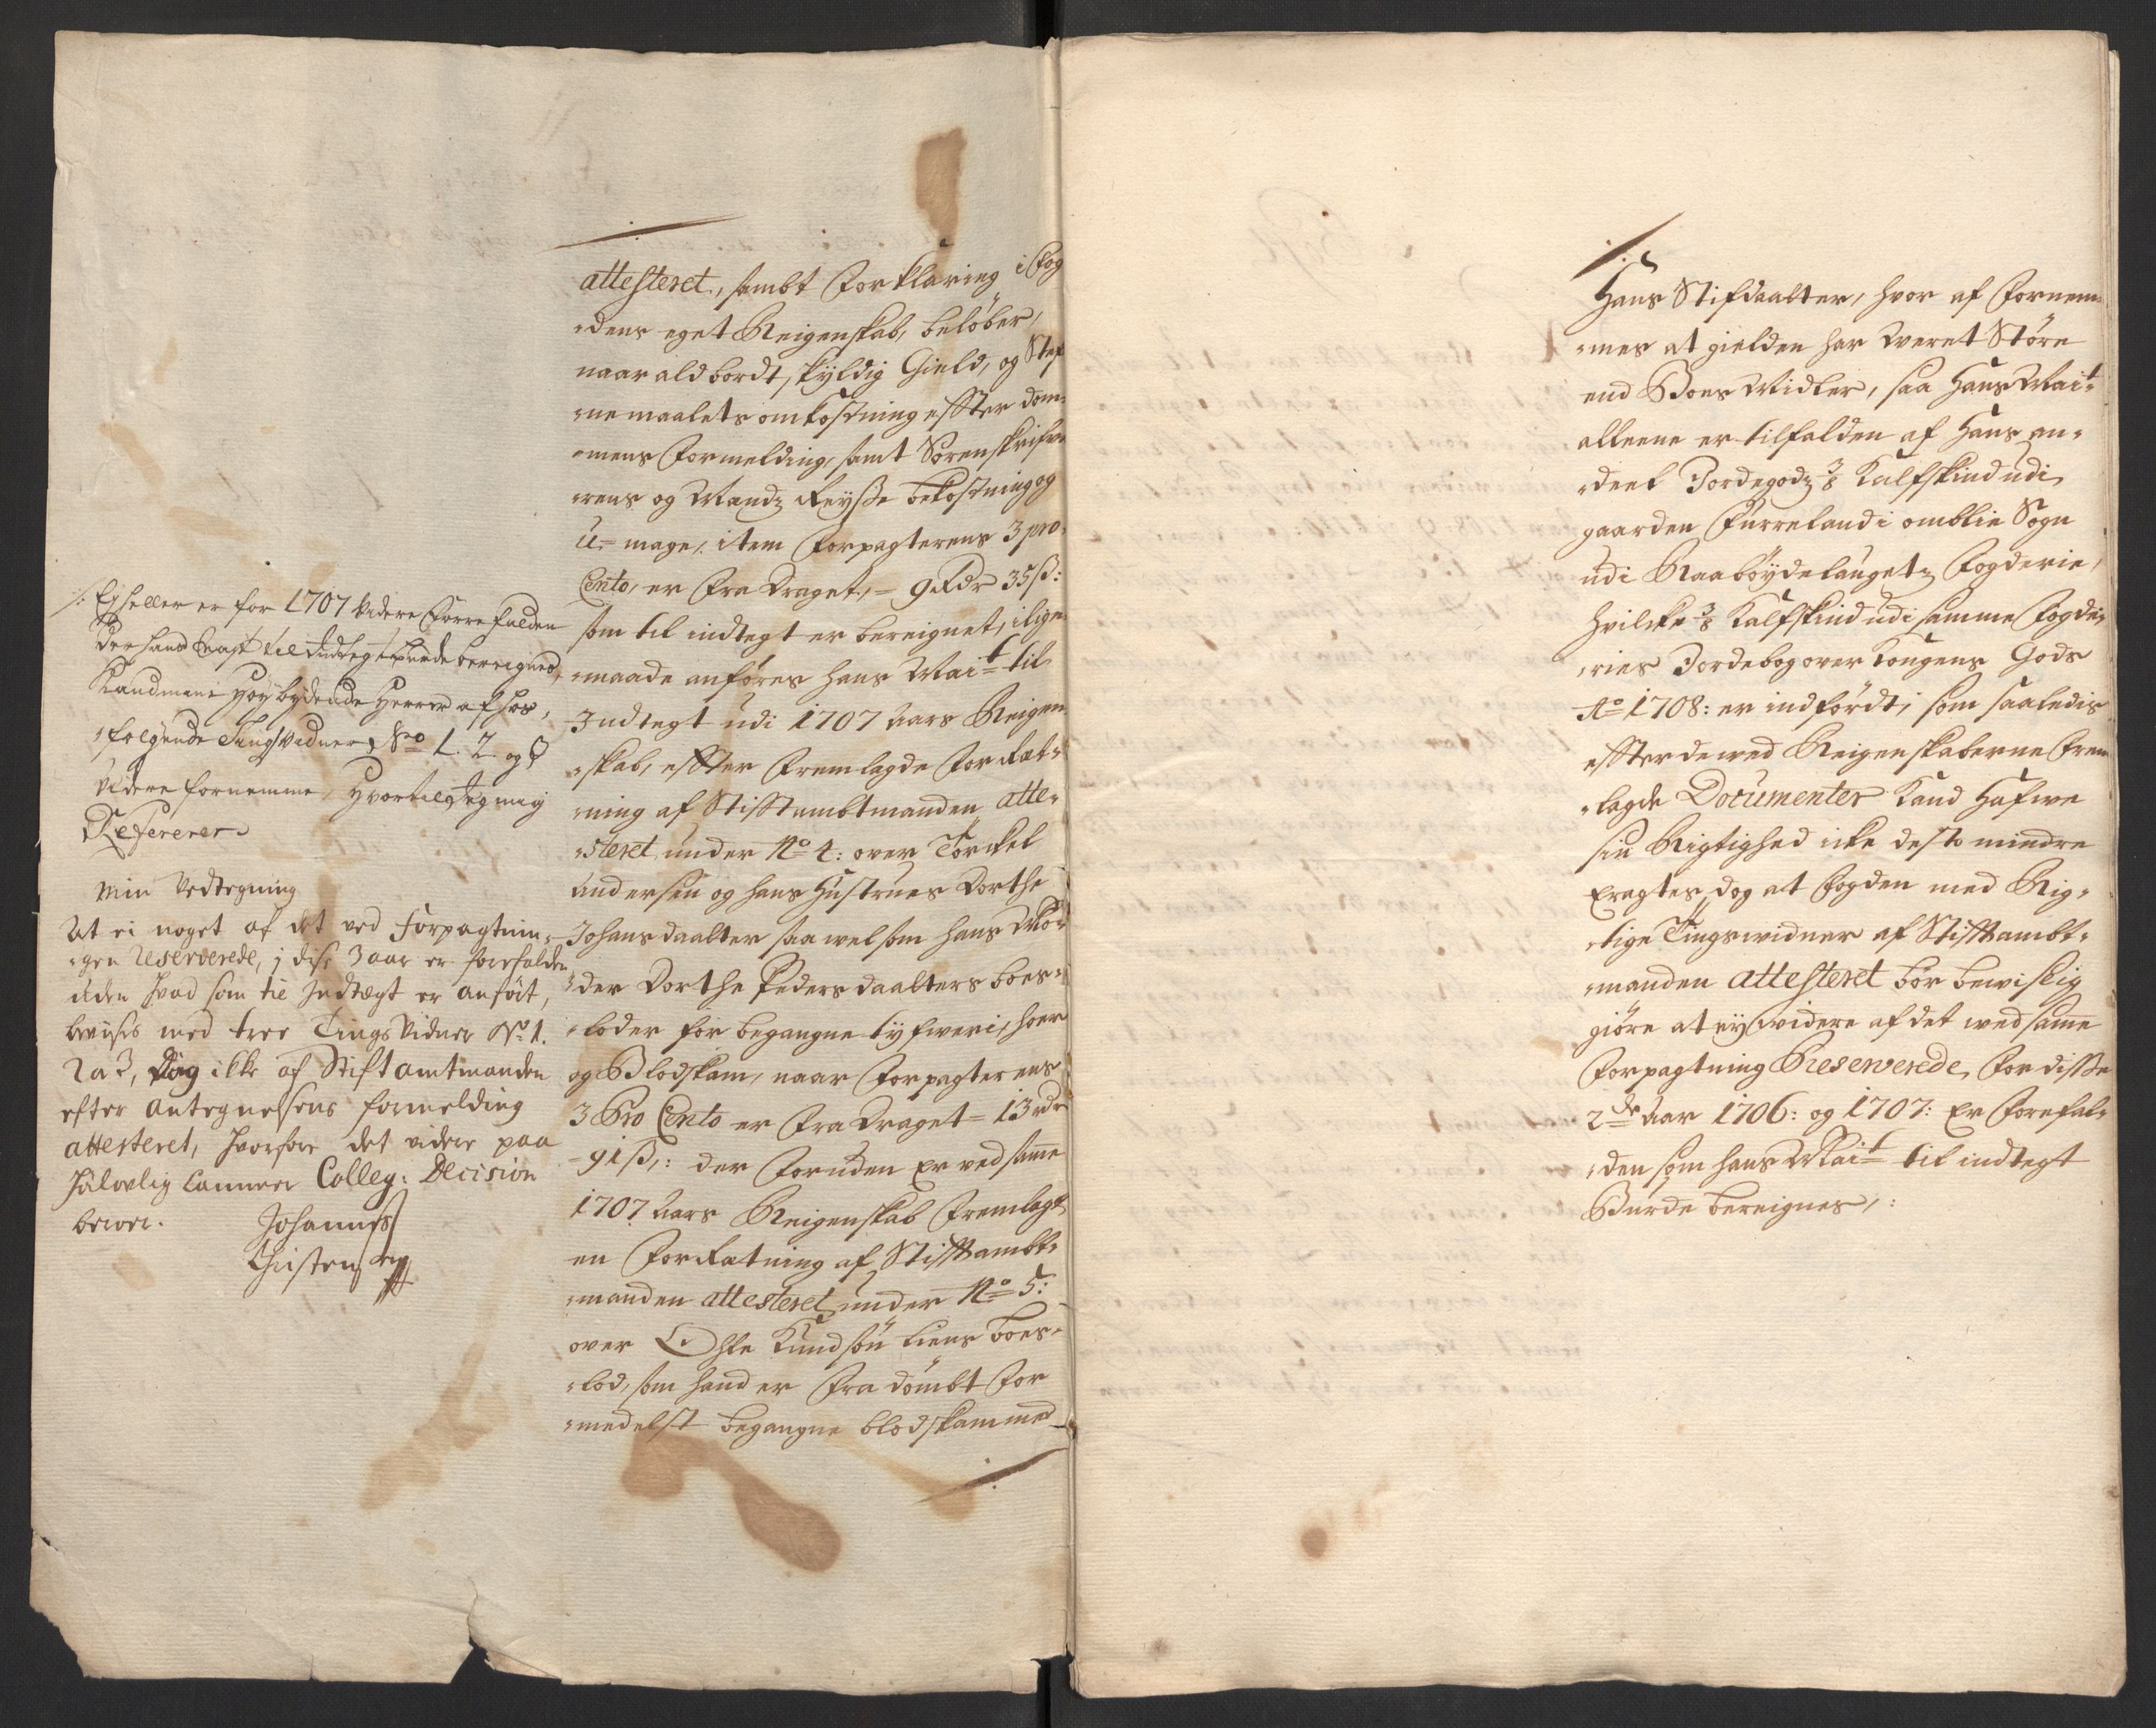 attesteret, sambt Forklaring i Fog
dens eget Reigenskab, beløber,
naar ald bordt skyldig Gield, og Stef
nemaalets omkostning effter dom
mens Formelding, samt Sorenskrifwe
rens og Mandz Reyße bekostning og
U-mage, item Forpagterens 3 pro
Cento, er Fra Draget, 9 Rdr 35 ß:
som til indtegt er bereignet, i lige
maade anføres hans Mait til
Indtegt udi 1707 Aars Reigen
skab, effter Fremlagde Forklat
ning af Stifftambtmanden atte
steret under No 4: over Torckel
Andersen og hans Hustrues Dorthe
Johansdaatter saa wel som hans Mo
der Dorthe Pedersdaatters boes
loder for begangne tyfweri, hoer
og Blodskam, naar Forpagterens
3 Pro Cento er Fra Draget 13 rdr
91 ß,: der Foruden Er ved samme
1707 Aars Reigenskab Fremlagt
en Forfatning af Stifftambt
manden attesteret under No 5:
over Knudsøn Liens boes
lod, som hand er Fra dømbt For
medelst begangne blodskam med
Ey heller er for 1707 videre Forrefalden
der hans Mayt til Indtegt burde bereignes,
Kand mine Høybydende Herrer af hos
følgende Tingsvidner No 1. 2 og 3
videre fornemme, Hvortil Jeg mig
Refererer
Min Vedtegning
At ei noget af det ved Forpagtnin
gen Reserverede, i dise 3 aar er forefalden
uden hvad som til Indtægt er anført,
bevises med tree Tings Vidner No 1.
2 a 3, dog ikke af Stiftamtmanden
efter Antegnelsens formelding
attesteret, hvorfore det videre paa
Cammer Colleg: Decision
beroer. Johannes
Christensen
Hans Stifdaatter, hvor af Fornem
mes at gielden har weret Støre
end Boens Midler, saa Hans Mait
alleene er tilfalden af Hans an
deel Jordegodz 3/8 Kalfskind udi
gaarden Furreland i omblie Sogn
udi Raabøydelaugetz Fogderie,
hvilcke 3/8 Kalfskind udi samme Fogde
ries Jordebog over Kongens Gods
Ao 1708: er indførdt, som saaledis
effter de wed Reigenskaberne Frem
lagde Documenter kand Hafwe
sin Rigtighed icke desto mindre
Eragtes dog at Fogden med Rig
tige Tingswidner af Stifftambt
manden attesteret bør bewislig
giøre at ey widere af det wed samme
Forpagtning Reserverede, for disse
2de Aar 1706: og 1707: Er Forefal
den som hans Mait til indtegt
Burde bereignes,: